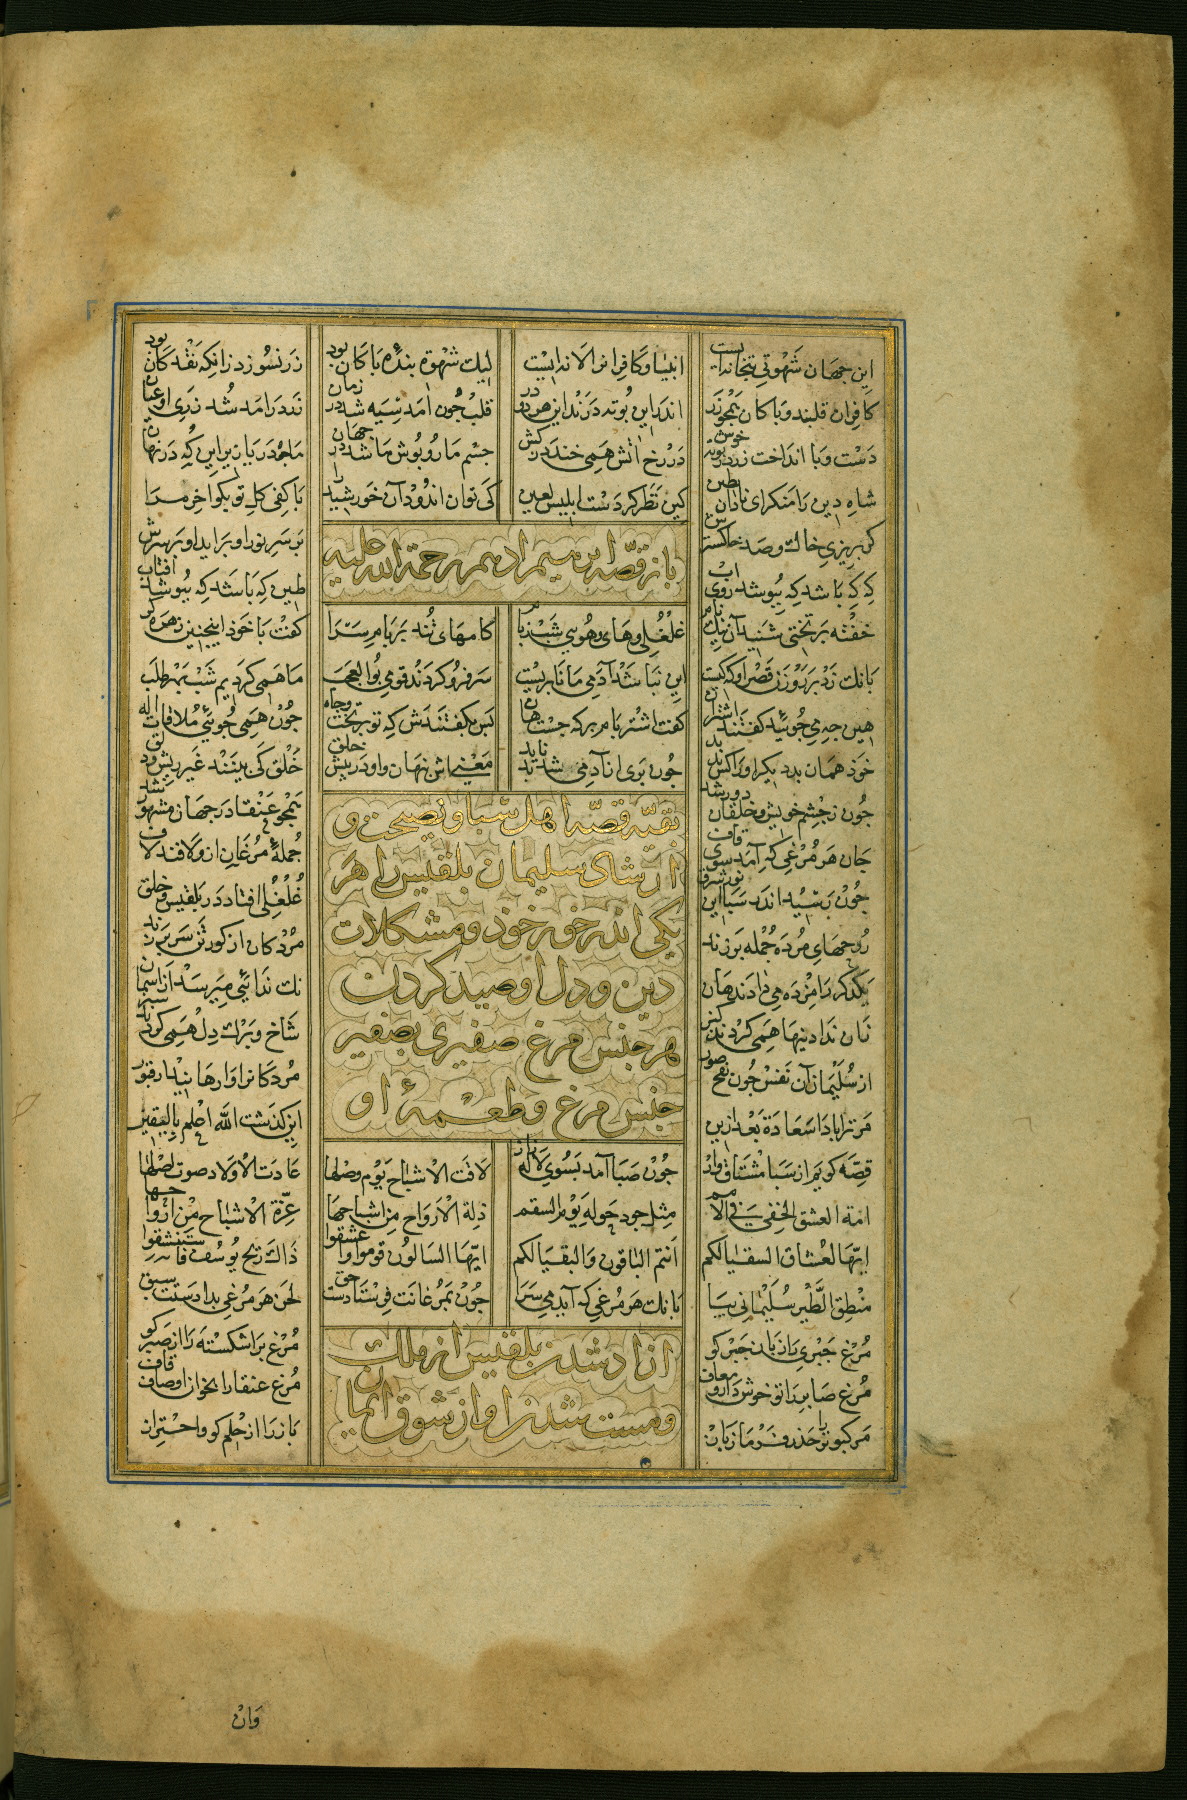 این جهان شهوتی بتخانه ایست انبیا و کافران را لانه ایست لیک شهوة بنده پاکان بود زر نسوزد زانکه نقد کان بود
کافران قلبند و پاکان همچو زر اندر این بوته درند این هر دو در قلب چون آمد سیه شد در زمان زر درآمد شد زری او عیان
دست و پا انداخت زر در بوته خوش در رخ آتش همی خندد رکش جسم ما روپوش ما شد در جهان ما چو دریا زیر این که در نهان
شاه دین را منکر ای نادان بطین کین نظر کردست ابلیس لعین کی توان اندود آن خورشید را با کفی کل تو بکو آخر مرا
کر بریزی خاک و صد خاکسترش بر سر نور او برآید بر سرش
که که باشد که بپوشد روی آب طین که باشد که بپوشد آفتاب
باز قصّه ابرهیم ادهم رحمة الله علیه
خفته بر تختی شنید آن نیک نام غلغلی و های و هویی شب ز بام کامهای تند بر بام سرا کفت با خود اینچنین زهره کرا
بانک زد بر روزن قصر او که کیست این نباشد آدمی مانا پریست سر فرو کردند قومی بوالعجب ما همی کردیم شب بهر طلب
هین چه می جویید کفتند اشتران کفت اشتر بام بر که جست هان پس بکفتندش که تو بر تخت و جاه چون همی جویی ملاقات اله
خود همان بد دیکر او را کس ندید چون پری از آدمی شد ناپدید معنی اش پنهان و او در پیش خلق خلق کی بینند غیر ریش و دلق
چون ز چشم خویش و خلقان دور شد همچو عنقا در جهان مشهور شد
جان هر مرغی که آمد سوی قاف جملهٔ مرغان ازو لافند لاف
چون رسید اندر سبا این نور شرق غلغلی افتاد در بلقیس و خلق
روحهای مرده جمله پر زدند مردکان از کور تن سر بر زدند
یکدکر را مژده می دادند هان نک ندایی میرسد از آسمان
زان ندا دینها همی کردند کبز شاخ و برک دل همی کردند سبز
از سلیمان آن نفس چون نفخ صور مردکان را وارهانید از قبور
مر ترا بادا سعادة بعد ازین این کذشت الله اعلم بالیقین
بقیّه قصّه اهل سبا و نصیحت و
ارشاد سلیمان بلقیس را هر
یکی اندر خور خود و مشکلات
دین و دل او صید کردن
هر جنس مرغ صفیری بصفیر
جنس مرغ و طعمهٔ او
قصّه کویم از سبا مشتاق وار چون صبا آمد بسوی لاله زار لاقت الاشباح یوم وصلها عادت الاولاد صوب اصلها
امة العشق الخفی فی الامم مثل جود حوله لوم السقم ذلة الارواح من اشباحها عزّة الاشباح من ارواحها
ایّها العشاق السقیا لکم انتم الباقون والبقیا لکم ایّها السالون قوموا واعشقوا ذاک ریح یوسف فاستنشقوا
منطق الطّیر سلیمانی بیا بانک هر مرغی که آید می سرا چون بمرغانت فرستادست حق لحن هر مرغی بدادست سبق
مرغ جبری را زبان جبر کو مرغ پر اشکسته را از صبر کو
مرغ صابر را تو خوش دار و معاف مرغ عنقا را بخوان اوصاف قاف
مر کبوتر را حذر فرما ز باز باز را از حلم کو و احتراز
ازاد شدن بلقیس از ملک
و مست شدن او از شوق ایما
وان